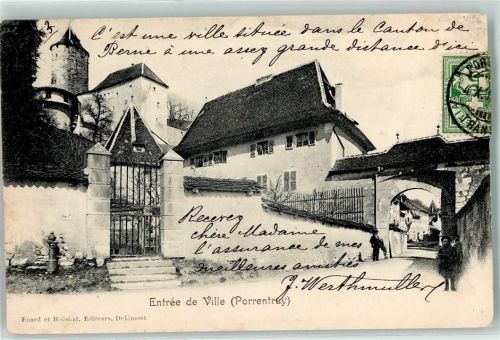 C'est une ville située dans le Canton de
Berne à une assez grande distance d'ici
Recevez
chère Madame
l'assurance de mes
meilleures amitiés
J. Werthmuller
Entrée de Ville (Porrentruy)
Enard et Boéchat, Editeurs, Delémont